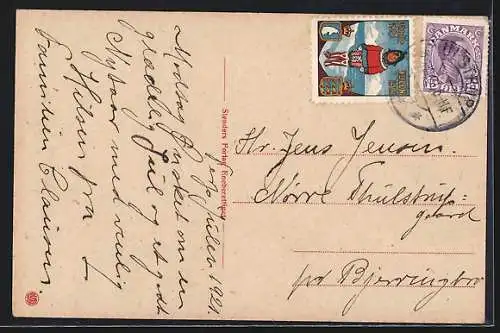 Modtag Ønsket om en
glædelig Jul og et godt
Nytaar med venlig
Hilsen fra
Familien Clausen.
Julen 1921.
Stenders Forlag Eneberettiget
Hr. Jens Jensen.
Nørre Thulstrup-
gaard
pr Bjerringbro
DANMARK
15
JUL